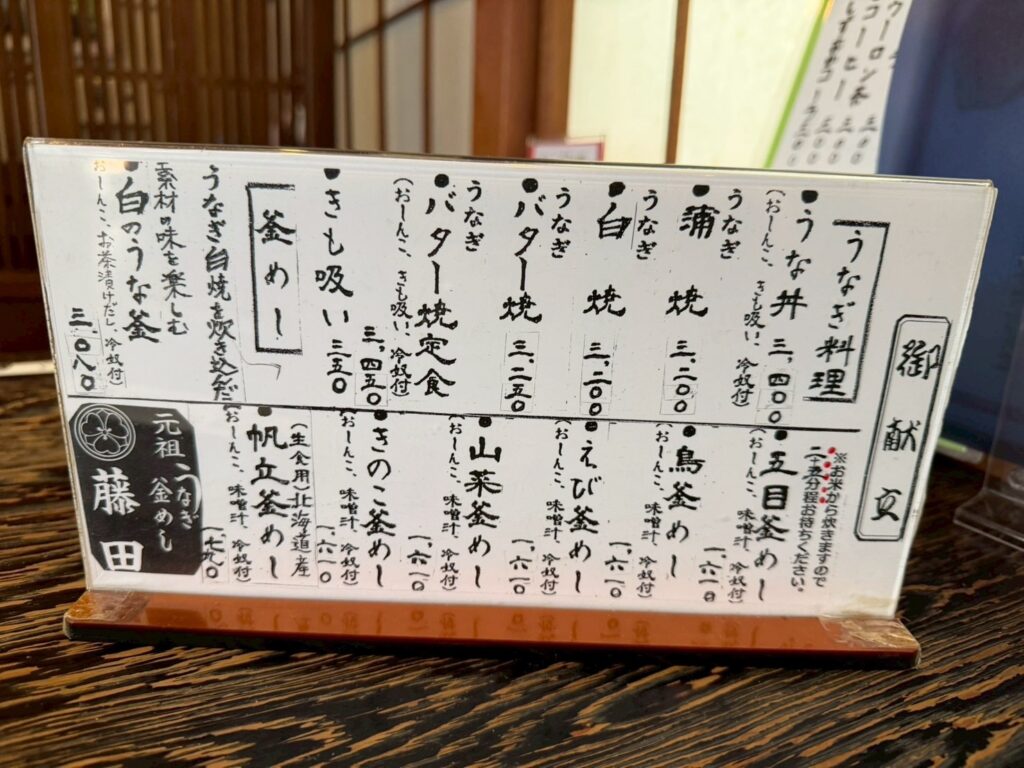 御献立
うなぎ料理
●うな丼 三、四〇〇
(おしんこ、きも吸い、冷奴付)
うなぎ
●蒲焼 三、二〇〇
うなぎ
●白焼 三、二〇〇
うなぎ
●バター焼 三、二五〇
うなぎ
●バター焼定食
(おしんこ、きも吸い、冷奴付)
三、四五〇
●きも吸い 三五〇
釜めし
うなぎ白焼を炊き込んだ
素材の味を楽しむ
●白のうな釜
おしんこ、お茶漬けだし、冷奴付)
三、〇八〇
※お米から炊きますので
二十五分程お待ちください。
●五目釜めし
(おしんこ、味噌汁、冷奴付)
一、六一〇
●鳥釜めし
(おしんこ、味噌汁、冷奴付)
一、六一〇
●えび釜めし
(おしんこ、味噌汁、冷奴付)
一、六一〇
●山菜釜めし
(おしんこ、味噌汁、冷奴付)
一、六一〇
●きのこ釜めし
(おしんこ、味噌汁、冷奴付)
一、六一〇
(生食用)北海道産
●帆立釜めし
(おしんこ、味噌汁、冷奴付)
元祖うなぎ釜めし
藤田
ウーロン茶
コーヒー